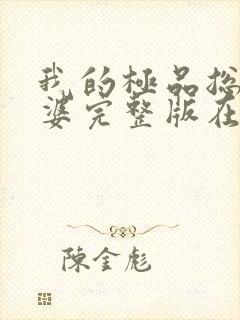 我的極品總
婆完整版在
陳金彪